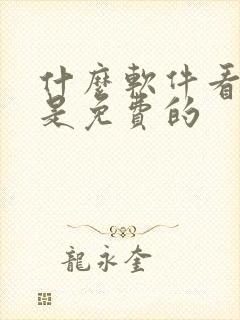 什麼軟件看
是免費的
龍永奎